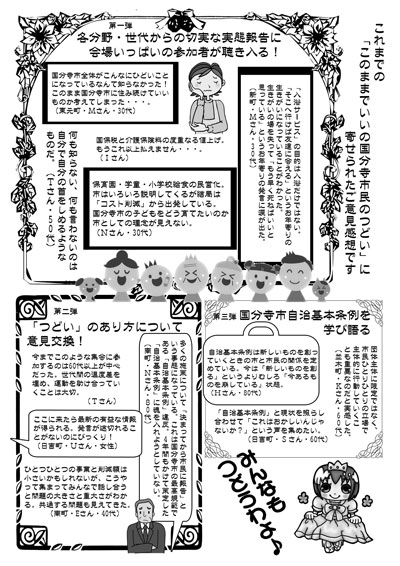 これまでの
「このままでいいの国分寺市民のつどい」に
寄せられたご意見感想です
第一弾
各分野・世代からの切実な実態報告に
会場いっぱいの参加者が聴き入る！
国分寺市全体がこんなにひどいこと
になっているなんて知らなかった！
このまま国分寺市に住み続けていい
ものか考えてしまった・・・。
（東元町・Mさん・30代）
「入浴サービス」の目的は入浴だけではない。
「そこへ行けば友達に会える」というお年寄りの
生きがいになっていることがわかった。
生きがいの場を失って「もう早く死ねばいいと
思っている」というお年寄りの発言に涙が出た。
（新町・Mさん・30代）
国保税と介護保険料の度重なる値上げ。
もうこれ以上払えません・・・。
（Iさん）
保育園・学童・小学校給食の民営化。
市はいろいろ説明してくるが結局は
「コスト削減」から出発している。
国分寺市の子どもをどう育てたいのか
市としての理念が見えない。
（Nさん・30代）
何も知らない、何も言わないのは
自分で自分の首をしめるような
ものだ。（Tさん・50代）
第二弾
「つどい」のあり方について
意見交換！
今までこのような集会に参
加するのは60代以上が中々
だった。世代間の温度差を
埋め、運動を助け合ってい
くことは大切。
（Tさん）
ここに来たら最新の有益な情報
が得られる。発言が途切れるこ
とがないのにびっくり！
（日吉町・Uさん・女性）
ひとつひとつの事実と削減額は
小さいかもしれないが、こうや
って集まってみんなで話し合う
と問題の大きさと重大さがわか
る。共通する問題も見えてきた。
（南町・Eさん・40代）
多くの施策について「決まってから市民に報告」と
いう事態になっている。これは国分寺市の最高規範で
ある「自治基本条例」違反。4年間もかけて策定した
「自治基本条例」に魂を入れようとしていない。
（南町・Kさん・60代）
第三弾
国分寺市自治基本条例を
学び語る
自治基本条例は新しいものを創っ
ていくときの市と市民の関係を定
めている。今は「新しいものを創
る」というよりむしろ「今あるもの
を崩している」状態。
（Hさん・80代）
団体主体に限定ではなく、
市民ひとりひとりの立場で
主体的に行動していくこ
とも重要なのだと実感した。
「自治基本条例」と現状を照らし
合わせて「これはおかしいんじゃ
ないか？」という声を集めたい。
（日吉町・Sさん・60代）
みんなも
つどうわよ♪